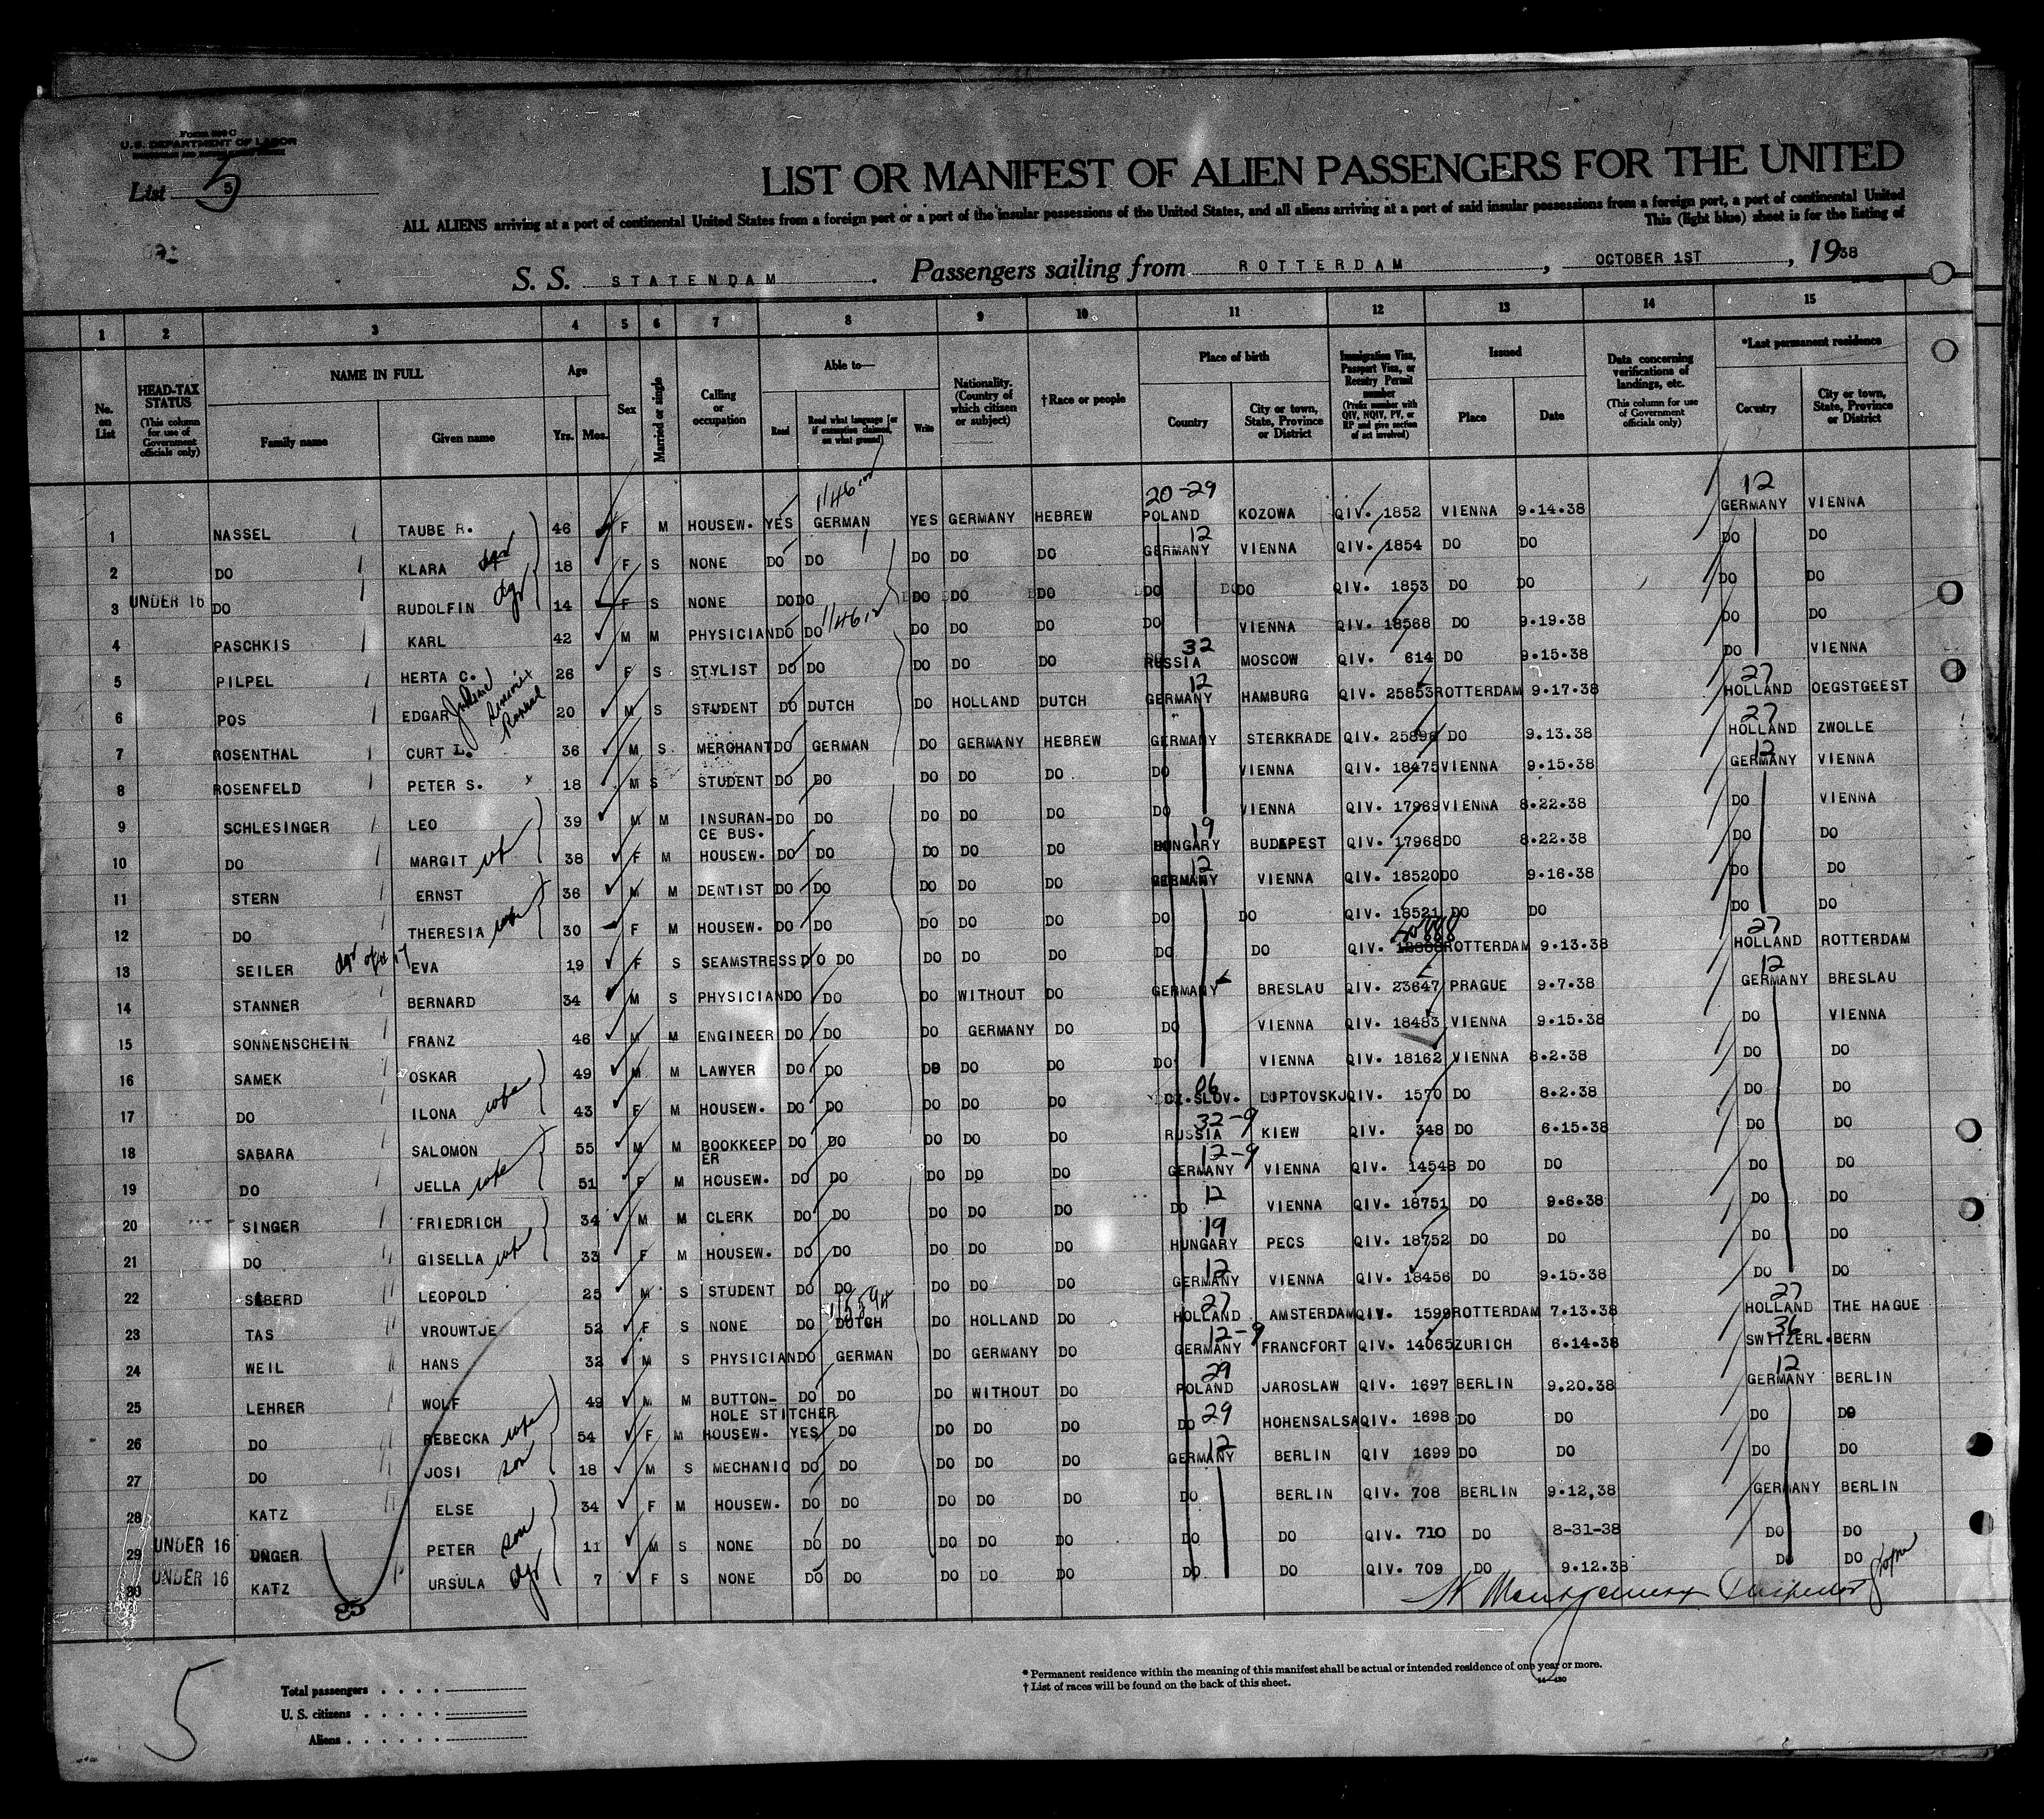 Form 500 C
U.S. DEPARTMENT OF LABOR
List 5 5
LIST OR MANIFEST OF ALIEN PASSENGERS FOR THE UNITED
ALL ALIENS arriving at a port of continental United States from a foreign port or a port of the insular possessions of the United States, and all aliens arriving at a port of said insular possessions from a foreign port, a port of continental United
This (light blue) sheet is for the listing of
S. S. STATENDAM. Passengers sailing from ROTTERDAM, OCTOBER 1ST, 1938
1 2 3 4 5 6 7 8 9 10 11 12 13 14 15
No. on List
HEAD-TAX STATUS (This column for use of Government officials only)
NAME IN FULL Family name Given name
Age Yrs. Mos.
Sex
Married or single
Calling or occupation
Able to— Read Read what language [or if exemption claimed, on what ground] Write
Nationality. (Country of which citizen or subject)
†Race or people
Place of birth Country City or town, State, Province or District
Immigration Visa, Passport Visa, or Reentry Permit number (Prefix number with QIV, NQIV, PV, or RP and give section of act involved)
Issued Place Date
Data concerning verifications of landings, etc. (This column for use of Government officials only)
*Last permanent residence Country City or town, State, Province or District
1/46 20-29 12
1 NASSEL TAUBE R. 46 F M HOUSEW. YES GERMAN YES GERMANY HEBREW POLAND KOZOWA QIV. 1852 VIENNA 9.14.38 GERMANY VIENNA
2 DO KLARA dgr 18 F S NONE DO DO DO DO DO 12 GERMANY VIENNA QIV. 1854 DO DO DO DO
3 UNDER 16 DO RUDOLFIN dgr 14 F S NONE DO DO DO DO DO DO DO QIV. 1853 DO DO DO DO
4 PASCHKIS KARL 42 M M PHYSICIAN DO DO 1/46 DO DO DO DO VIENNA QIV. 18568 DO 9.19.38 DO DO
5 PILPEL HERTA C. 26 F S STYLIST DO DO DO DO DO 32 RUSSIA MOSCOW QIV. 614 DO 9.15.38 DO VIENNA
6 POS EDGAR 20 M S STUDENT DO DUTCH DO HOLLAND DUTCH 12 GERMANY HAMBURG QIV. 25853 ROTTERDAM 9.17.38 27 HOLLAND OEGSTGEEST
7 ROSENTHAL CURT L. 36 M S MERCHANT DO GERMAN DO GERMANY HEBREW GERMANY STERKRADE QIV. 25896 DO 9.13.38 27 HOLLAND ZWOLLE
8 ROSENFELD PETER S. x 18 M S STUDENT DO DO DO DO DO DO VIENNA QIV. 18475 VIENNA 9.15.38 12 GERMANY VIENNA
9 SCHLESINGER LEO 39 M M INSURAN-CE BUS. DO DO DO DO DO DO VIENNA QIV. 17969 VIENNA 8.22.38 DO VIENNA
10 DO MARGIT wf 38 F M HOUSEW. DO DO DO DO DO 19 HUNGARY BUDAPEST QIV. 17968 DO 8.22.38 DO DO
11 STERN ERNST 36 M M DENTIST DO DO DO DO DO 12 GERMANY VIENNA QIV. 18520 DO 9.16.38 DO DO
12 DO THERESIA wife 30 F M HOUSEW. DO DO DO DO DO DO DO QIV. 18521 DO DO DO DO
13 SEILER dgr of # 17 EVA 19 F S SEAMSTRESS DO DO DO DO DO DO DO QIV. ROTTERDAM 9.13.38 27 HOLLAND ROTTERDAM
14 STANNER BERNARD 34 M S PHYSICIAN DO DO DO WITHOUT DO GERMANY BRESLAU QIV. 23647 PRAGUE 9.7.38 12 GERMANY BRESLAU
15 SONNENSCHEIN FRANZ 46 M M ENGINEER DO DO DO GERMANY DO DO VIENNA QIV. 18483 VIENNA 9.15.38 DO VIENNA
16 SAMEK OSKAR 49 M M LAWYER DO DO DO DO DO DO VIENNA QIV. 18162 VIENNA 8.2.38 DO DO
17 DO ILONA wife 43 F M HOUSEW. DO DO DO DO DO 06 CZ.SLOV. LIPTOVSKJ QIV. 1570 DO 8.2.38 DO DO
18 SABARA SALOMON 55 M M BOOKKEEPER DO DO DO DO DO 32-9 RUSSIA KIEW QIV. 348 DO 6.15.38 DO DO
19 DO JELLA wife 51 F M HOUSEW. DO DO DO DO DO 12-9 GERMANY VIENNA QIV. 14548 DO DO DO DO
20 SINGER FRIEDRICH 34 M M CLERK DO DO DO DO DO 12 DO VIENNA QIV. 18751 DO 9.6.38 DO DO
21 DO GISELLA wife 33 F M HOUSEW. DO DO DO DO DO 19 HUNGARY PECS QIV. 18752 DO DO DO DO
22 SABERD LEOPOLD 25 M S STUDENT DO DO DO DO DO 12 GERMANY VIENNA QIV. 18456 DO 9.15.38 DO DO
23 TAS VROUWTJE 52 F S NONE DO DUTCH DO HOLLAND DO 27 HOLLAND AMSTERDAM QIV. 1599 ROTTERDAM 7.13.38 27 HOLLAND THE HAGUE
24 WEIL HANS 32 M S PHYSICIAN DO GERMAN DO GERMANY DO 12-9 GERMANY FRANCFORT QIV. 14065 ZURICH 6.14.38 36 SWITZERL. BERN
25 LEHRER WOLF 49 M M BUTTON-HOLE STITCHER DO DO DO WITHOUT DO 29 POLAND JAROSLAW QIV. 1697 BERLIN 9.20.38 12 GERMANY BERLIN
26 DO REBECKA wife 54 F M HOUSEW. YES DO DO DO DO DO 29 HOHENSALSA QIV. 1698 DO DO DO DO
27 DO JOSI son 18 M S MECHANIC DO DO DO DO DO 12 GERMANY BERLIN QIV 1699 DO DO DO DO
28 KATZ ELSE 34 F M HOUSEW. DO DO DO DO DO DO BERLIN QIV. 708 BERLIN 9.12,38 GERMANY BERLIN
29 UNDER 16 UNGER PETER son 11 M S NONE DO DO DO DO DO DO DO QIV. 710 DO 8-31-38 DO DO
30 UNDER 16 KATZ URSULA dgr 7 F S NONE DO DO DO DO DO DO DO QIV. 709 DO 9.12.38 DO DO
Montgomery Inspector
5
Total passengers
U. S. citizens
Aliens
* Permanent residence within the meaning of this manifest shall be actual or intended residence of one year or more.
† List of races will be found on the back of this sheet.
14-430